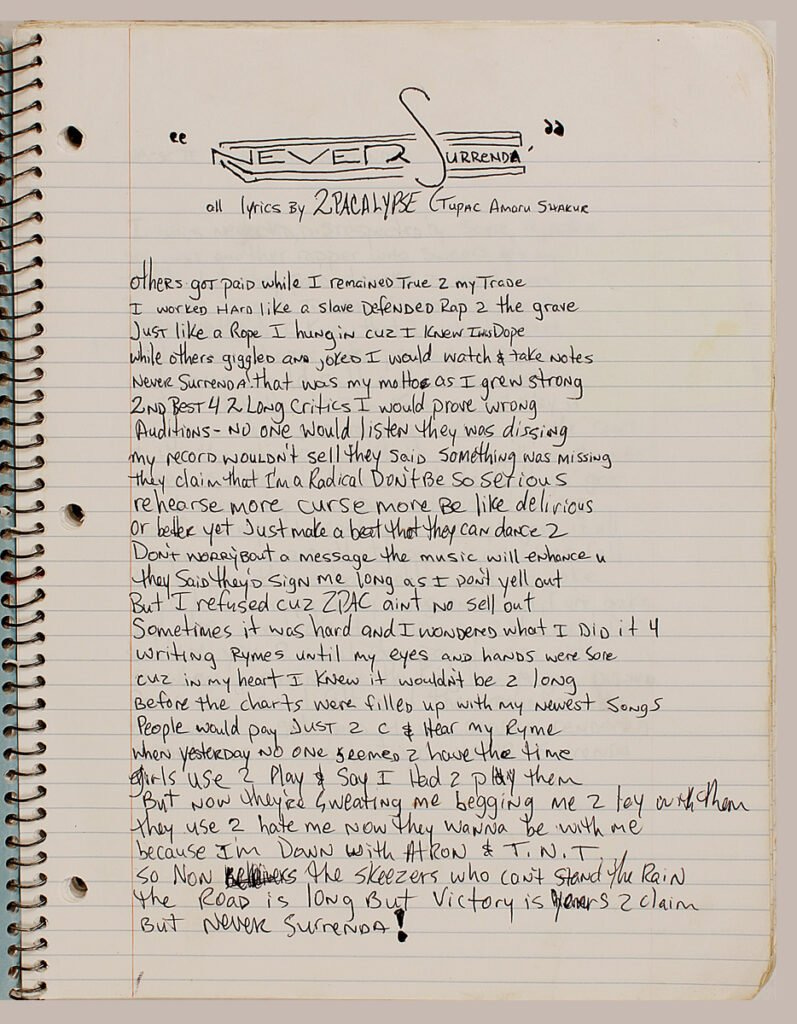 "NEVER SURRENDA'"
all lyrics By 2PACALYPSE (Tupac Amaru Shakur
others got paid while I remained True 2 my Trade
I worked Hard like a slave Defended Rap 2 the grave
Just like a Rope I hung in cuz I Knew I was Dope
while others giggled and joked I would watch & take notes
Never Surrenda! that was my motto as I grew strong
2nd Best 4 2 Long Critics I would prove wrong
Auditions - no one would listen they was dissing
my record wouldn't sell they said something was missing
they claim that I'm a Radical Don't Be so serious
rehearse more curse more Be like delirious
or better yet Just make a beat that they can dance 2
Don't worry bout a message the music will enhance u
they Said they'd sign me long as I don't yell out
But I refused cuz 2PAC aint no sell out
Sometimes it was hard and I wondered what I Did it 4
writing Rymes until my eyes and hands were sore
cuz in my heart I Knew it wouldn't be 2 long
Before the charts were filled up with my newest songs
People would pay Just 2 C & Hear my Ryme
when yesterday no one seemed 2 have the time
girls use 2 Play & Say I Had 2 play them
But now they're sweating me begging me 2 lay with them
they use 2 hate me now they wanna be with me
because I'm Down with Atron & T.N.T.
So Non the skeezers who can't stand the Rain
the Road is long But Victory is yours 2 claim
But Never Surrenda!